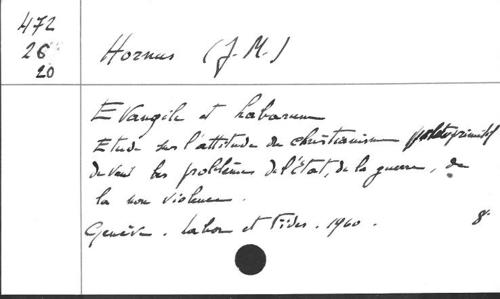 472
26
20
Hornus (J.M.)
Evangile et labarum
Etude sur l'attitude du christianisme primitif
devant les problèmes de l'Etat, de la guerre, de
la non violence.
Genève. Labor et Fides. 1960. 8°